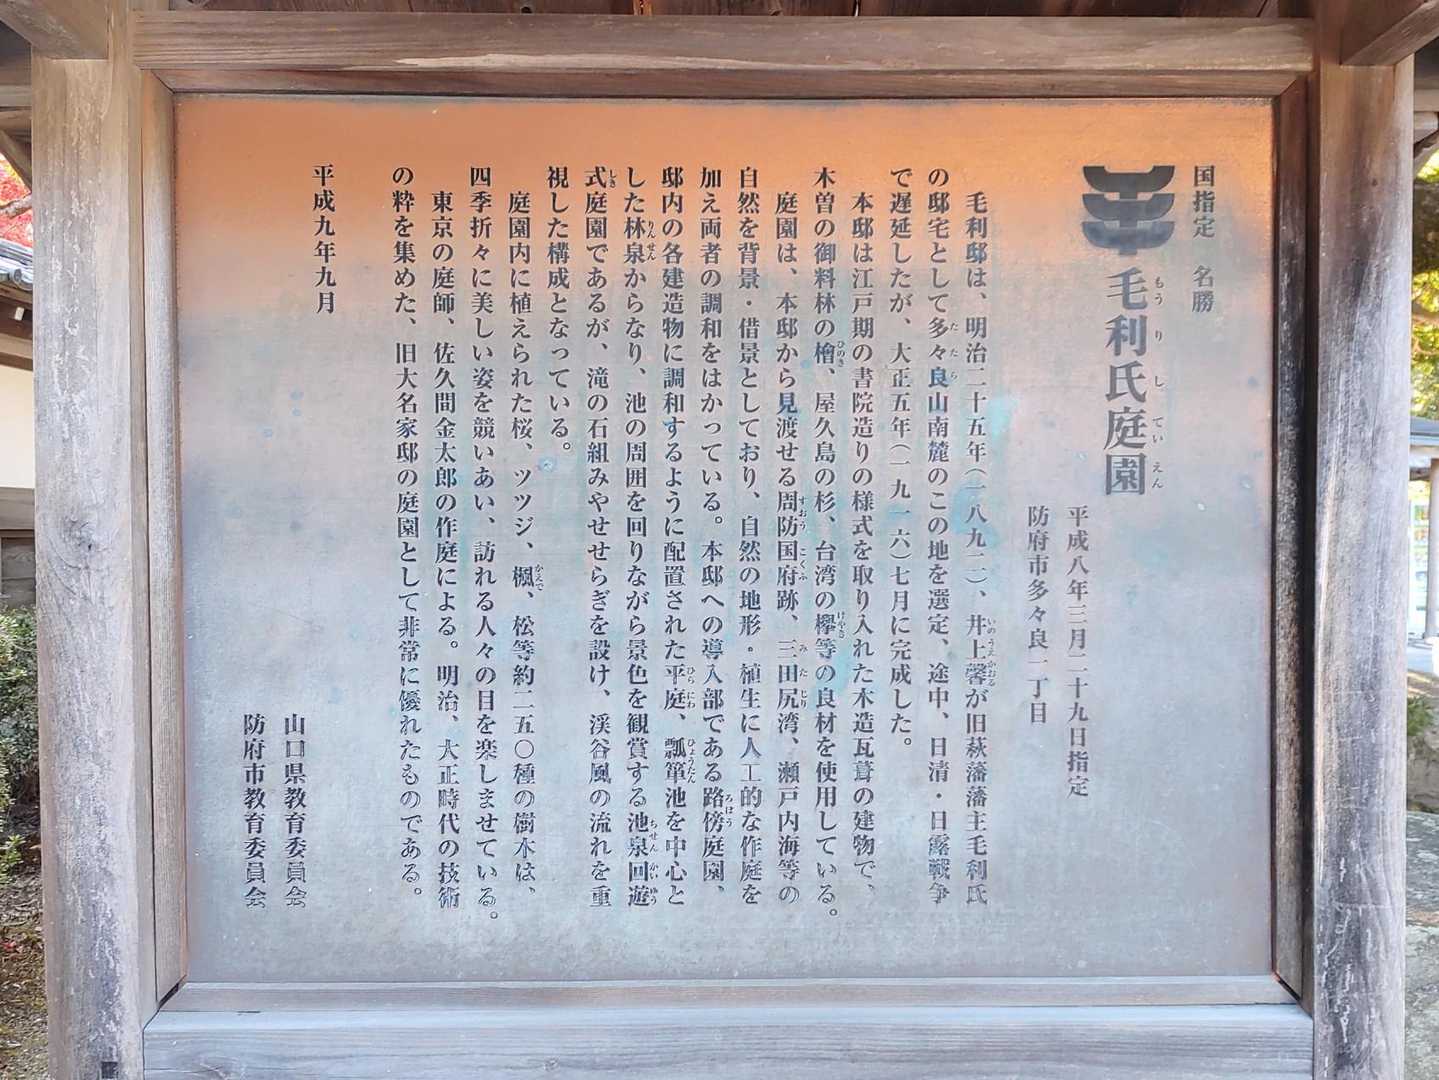 国指定　名勝
毛利氏庭園
もうりしていえん
平成八年三月二十九日指定
防府市多々良一丁目
毛利邸は、明治二十五年（一八九二）、井上馨が旧萩藩藩主毛利氏
いのうえかおる
の邸宅として多々良山南麓のこの地を選定、途中、日清・日露戦争
たたら
で遅延したが、大正五年（一九一六）七月に完成した。
本邸は江戸期の書院造りの様式を取り入れた木造瓦葺の建物で、
木曽の御料林の檜、屋久島の杉、台湾の欅等の良材を使用している。
ひのき
けやき
庭園は、本邸から見渡せる周防国府跡、三田尻湾、瀬戸内海等の
すおう
こくふ
みたじり
自然を背景・借景としており、自然の地形・植生に人工的な作庭を
加え両者の調和をはかっている。本邸への導入部である路傍庭園、
ろぼう
邸内の各建造物に調和するように配置された平庭、瓢箪池を中心と
ひらにわ
ひょうたん
した林泉からなり、池の周囲を回りながら景色を観賞する池泉回遊
りんせん
ちせんかいゆう
式庭園であるが、滝の石組みやせせらぎを設け、渓谷風の流れを重
しき
視した構成となっている。
庭園内に植えられた桜、ツツジ、楓、松等約二五〇種の樹木は、
かえで
四季折々に美しい姿を競いあい、訪れる人々の目を楽しませている。
東京の庭師、佐久間金太郎の作庭による。明治、大正時代の技術
の粋を集めた、旧大名家邸の庭園として非常に優れたものである。
平成九年九月
山口県教育委員会
防府市教育委員会